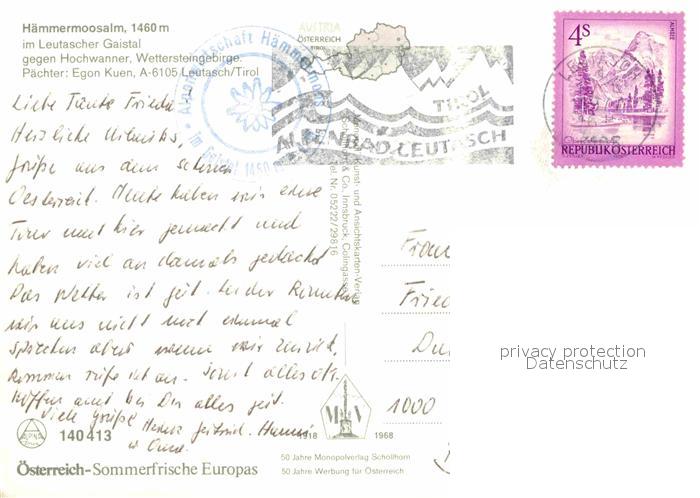 Hämmermoosalm, 1460 m
im Leutascher Gaistal
gegen Hochwanner, Wettersteingebirge.
Pächter: Egon Kuen, A-6105 Leutasch/Tirol
AUSTRIA
ÖSTERREICH
TIROL
ALPENBAD LEUTASCH
4S
REPUBLIK ÖSTERREICH
Liebe Tante Frieda
Herzliche Urlaubs,
Grüße aus dem schönen
Oesterreich. Heute haben wir eine
Tour mit hier gemacht und
haben viel an damals gedacht
Das Wetter ist gut. Leider konnten
wir uns nicht noch einmal
sprechen aber wenn wir zurück,
kommen rufe ich an. Sonst alles ok.
Hoffen auch bei Dir alles gut.
Viele Grüße
Kunst- und Ansichtskarten-Verlag
& Co. Innsbruck,
Tel. Nr. 05222/29816
Frau
Fried
1000
privacy protection
Datenschutz
140 413
M V
1918 1968
50 Jahre Monopolverlag Schöllhorn
50 Jahre Werbung für Österreich
Österreich-Sommerfrische Europas